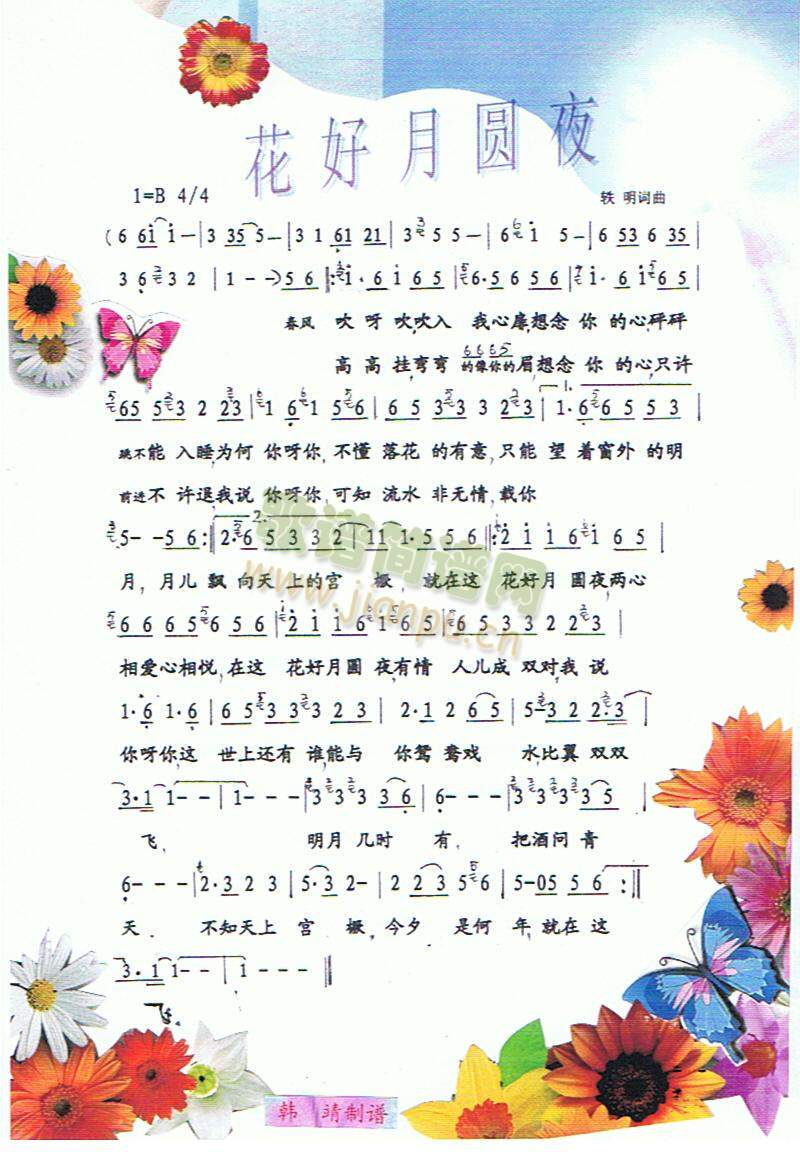 花好月圆夜
1=B 4/4
轶 明词曲
(6 6i i-|3 35 5-|3 1 61 21|3 5 5-|6 i 5-|6 53 6 35|
3 6 3 2|1--)5 6|:i·6 i 6 5|6·5 6 5 6|i·6 i 6 5|
春风 吹 呀 吹,吹入 我心扉,想念 你 的心,砰砰
高 高 挂,弯弯 的像你的眉,想念 你 的心,只许
6 6 6 5
665 53 2 23|1 6 1 56|6 5 3 3 3 2 3|1·6 6 5 5 3|
跳不能 入睡,为何 你呀你,不懂 落花 的有意,只能 望 着窗外 的明
前进不 许退,我说 你呀你,可知 流水 非无情,载你
5--5 6:|2·6 5 3 3 2|1 1 1·5 5 6|:2 i i 6 i 6 5|
月,月儿 飘 向天 上的宫 楜,就在这 花好月 圆夜,两心
歌谱简谱网
www.jianpu.cn
6 6 6 5 6 5 6|2 i i 6 1 6 5|6 5 3 3 2 2 3|
相爱心相悦,在这 花好月圆 夜,有情 人儿成 双对,我 说
1·6 1·6|6 5 3 3 3 2 3|2·1 2 6 5|5-3 2 2·3|
你呀你,这 世上还有 谁能与 你鸳 鸯戏 水,比翼 双双
3·1 1--|1---|3 3 3 3 6|6---|3 3 3 3 3|
飞, 明月 几时 有, 把酒问 青
6---|2·3 2 3|5·3 2-|2 2 2 3 5 6|5-05 5 6:|
天. 不知天上 宫 楜,今夕 是何 年,就在 这
3·1 1--|1---‖
飞.
韩 靖制谱